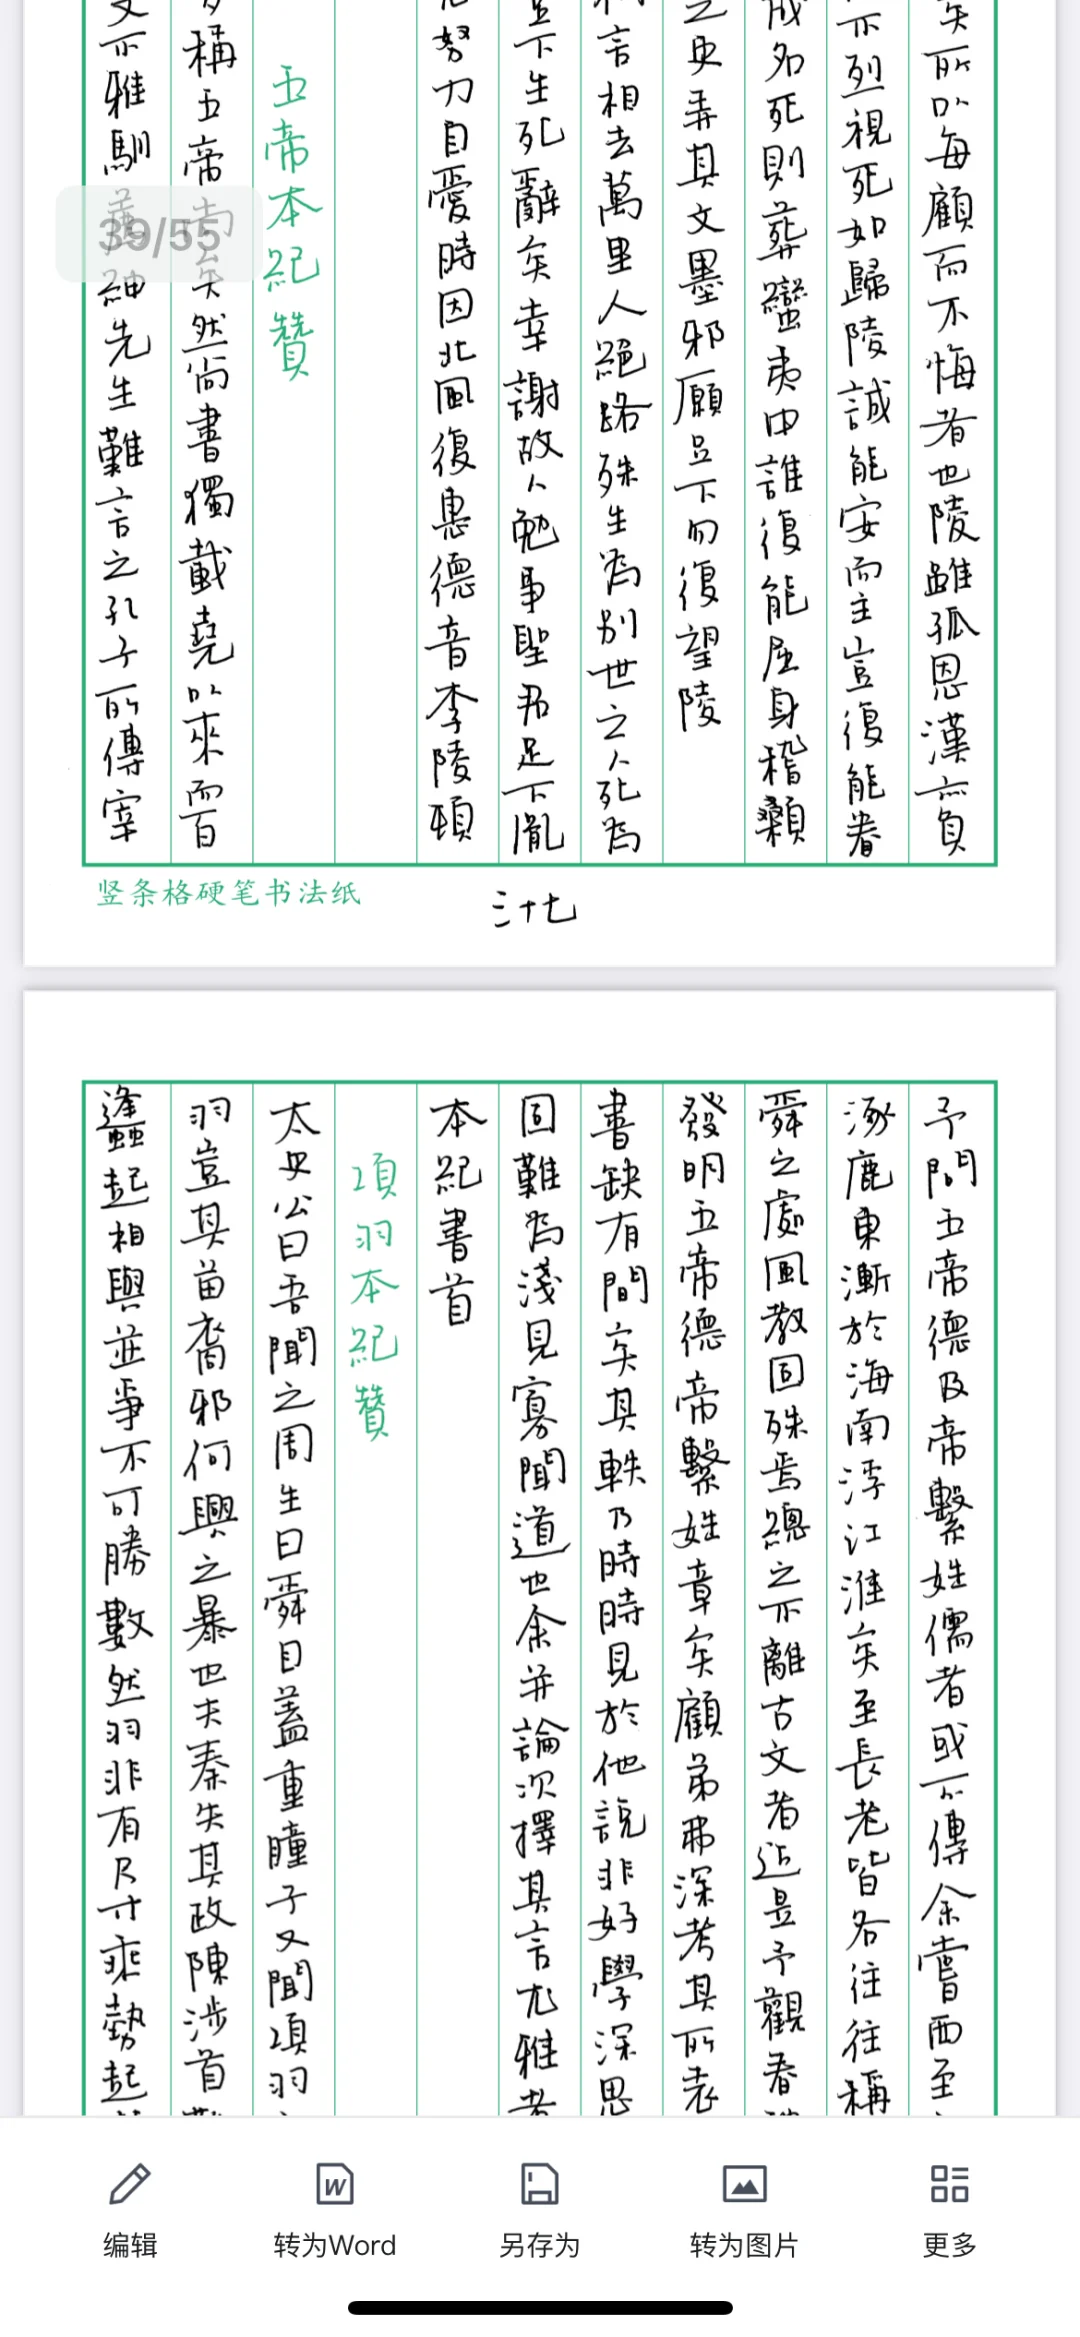 矣所以每顧而不悔者也陵雖孤恩漢亦負
亦烈視死如歸陵誠能安而主豈復能眷
成名死則葬蠻夷中誰復能屈身稽顙
之吏弄其文墨邪願足下勿復望陵
言相去萬里人絕路殊生為別世之人死為
足下生死辭矣幸謝故人勉事聖君足下胤
努力自愛時因北風復惠德音李陵頓
五帝本紀贊
稱五帝尚矣然尚書獨載堯以來而百
文不雅馴薦紳先生難言之孔子所傳宰
39/55
竖条格硬笔书法纸
三十七
予問五帝德及帝繫姓儒者或不傳余嘗西至
涿鹿東漸於海南浮江淮矣至長老皆各往往稱
舜之處風教固殊焉總之不離古文者近是予觀春
發明五帝德帝繫姓章矣顧弟弗深考其所表
書缺有間矣其軼乃時時見於他說非好學深思
固難為淺見寡聞道也余并論次擇其言尤雅者
本紀書首
項羽本紀贊
太史公曰吾聞之周生曰舜目蓋重瞳子又聞項羽
羽豈其苗裔邪何興之暴也夫秦失其政陳涉首
蠭起相與並爭不可勝數然羽非有尺寸乘勢起
编辑
转为Word
另存为
转为图片
更多